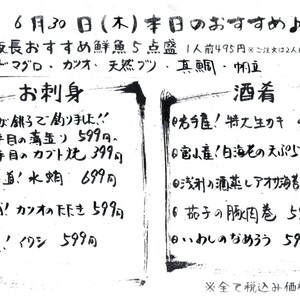 6月30日(木)本日のおすすめ♪
長おすすめ鮮魚5点盛 1人前495円 ※ご注文は2人
マグロ・カツオ・天然ブリ・真鯛・帆立
お刺身
が銚子で釣りました!!
本日の薄造り 599円
本日のカブト焼 399円
道!水蛸 699円
!カツオのたたき 59
!イワシ 599円
酒肴
岩手産!特大生カキ 4
富山産!白海老の天ぷら 5
浅利の酒蒸しアオサ海苔
茄子の豚肉巻 59
いわしのなめろう 599
※全て税込み価